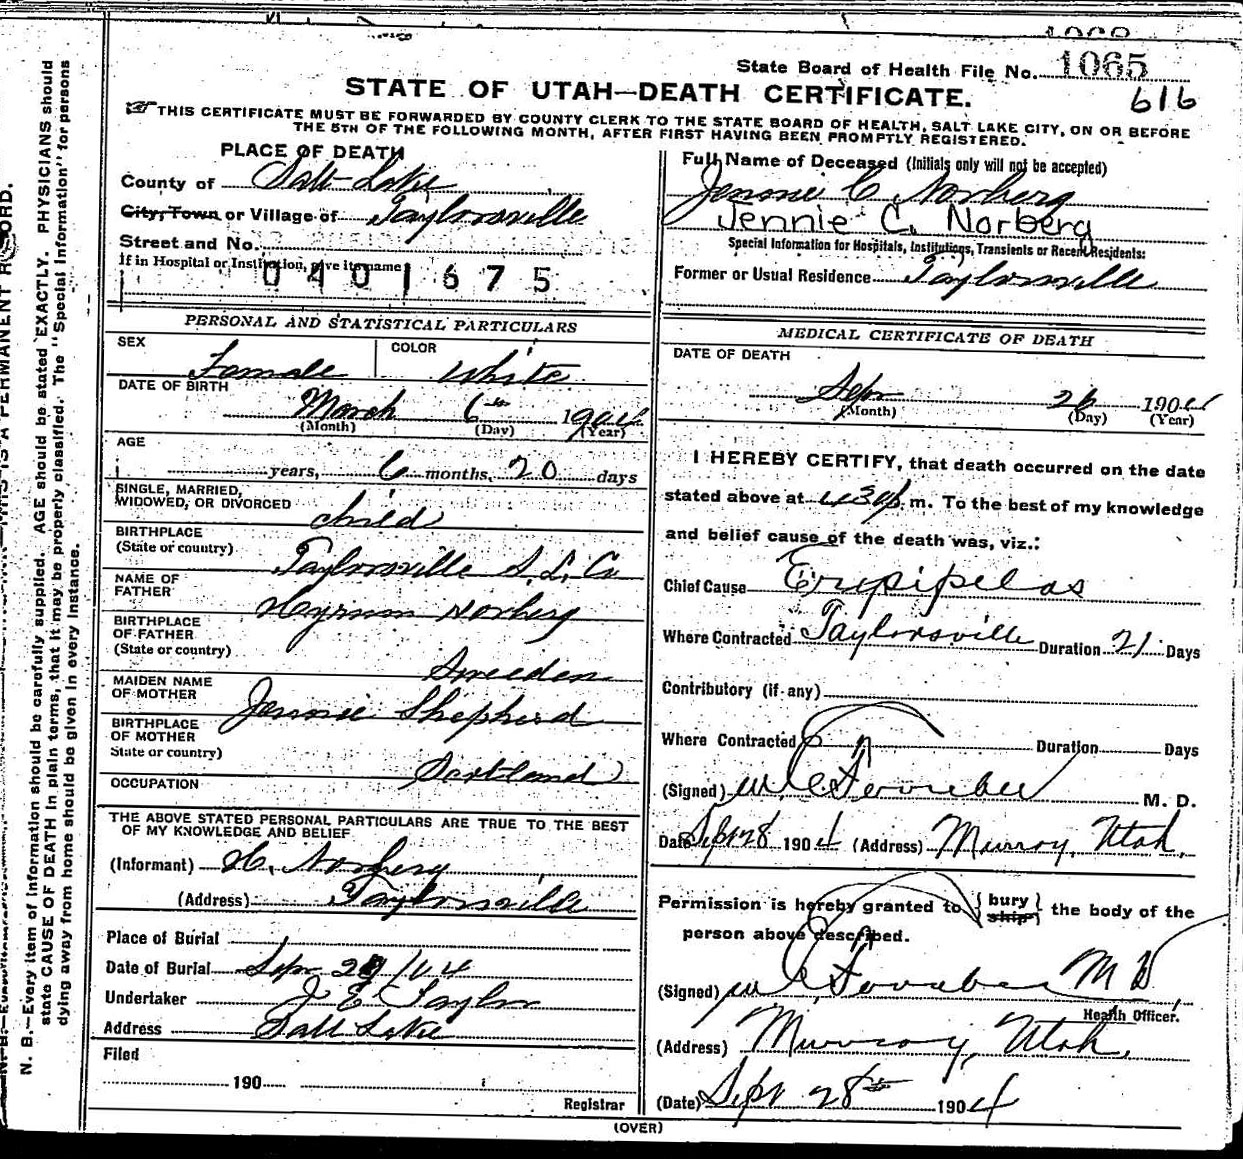 1068
State Board of Health File No. 1065
STATE OF UTAH—DEATH CERTIFICATE.
616
THIS CERTIFICATE MUST BE FORWARDED BY COUNTY CLERK TO THE STATE BOARD OF HEALTH, SALT LAKE CITY, ON OR BEFORE
THE 5TH OF THE FOLLOWING MONTH, AFTER FIRST HAVING BEEN PROMPTLY REGISTERED.
PLACE OF DEATH
County of Salt Lake
City, Town or Village of Taylorsville
Street and No.
If in Hospital or Institution, give its name
0401675
Full Name of Deceased (Initials only will not be accepted)
Jennie C. Norberg
Jennie C. Norberg
Special Information for Hospitals, Institutions, Transients or Recent Residents:
Former or Usual Residence Taylorsville
PERSONAL AND STATISTICAL PARTICULARS
SEX Female COLOR White
DATE OF BIRTH
March 6th 1904
(Month) (Day) (Year)
AGE
years, 6 months, 20 days
SINGLE, MARRIED,
WIDOWED, OR DIVORCED child
BIRTHPLACE
(State or country) Taylorsville S. L. Co
NAME OF
FATHER Hyrum Norberg
BIRTHPLACE
OF FATHER
(State or country) Sweeden
MAIDEN NAME
OF MOTHER Jennie Shepherd
BIRTHPLACE
OF MOTHER
State or country) Scotland
OCCUPATION
THE ABOVE STATED PERSONAL PARTICULARS ARE TRUE TO THE BEST
OF MY KNOWLEDGE AND BELIEF
(Informant) H. Norberg
(Address) Taylorsville
Place of Burial
Date of Burial Sep 28/04
Undertaker J E Taylor
Address Salt Lake
Filed
190
Registrar
MEDICAL CERTIFICATE OF DEATH
DATE OF DEATH
Sep 26 1904
(Month) (Day) (Year)
I HEREBY CERTIFY, that death occurred on the date
stated above at 430 p. m. To the best of my knowledge
and belief cause of the death was, viz.:
Chief Cause Erysipelas
Where Contracted Taylorsville Duration 21 Days
Contributory (if any)
Where Contracted Duration Days
(Signed) M. D.
Date Sept 28 1904 (Address) Murray, Utah.
Permission is hereby granted to { bury
ship } the body of the
person above described.
(Signed) M D
Health Officer.
(Address) Murray, Utah.
(Date) Sept 28th 1904
(OVER)
N. B.—Every item of information should be carefully supplied. AGE should be stated EXACTLY. PHYSICIANS should
state CAUSE OF DEATH in plain terms, that it may be properly classified. The "Special Information" for persons
dying away from home should be given in every instance.